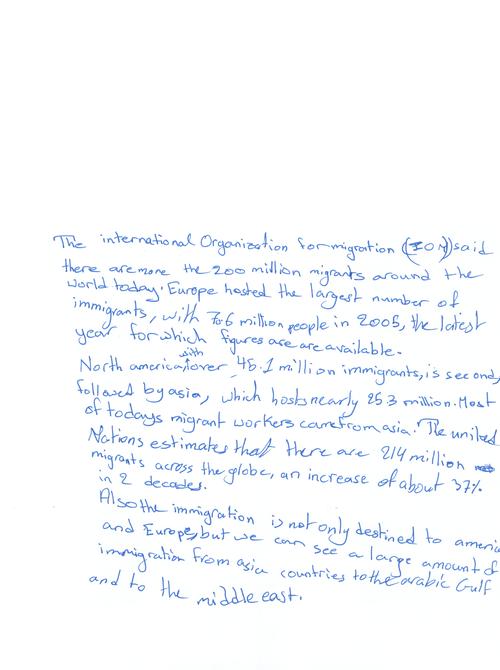 The international Organization for migration (IOM) said
there are more the 200 million migrants around the
world today. Europe hosted the largest number of
immigrants, with 7o.6 million people in 2005, the latest
year for which figures are are available.
North america, with over 45.1 million immigrants, is second,
followed by asia, which hosts nearly 25.3 million. Most
of todays migrant workers came from asia. The united
Nations estimates that there are 214 million
migrants across the globe, an increase of about 37%
in 2 decades.
Also the immigration is not only destined to americ
and Europe, but we can see a large amount of
immigration from asia countries to the arabic Gulf
and to the middle east.